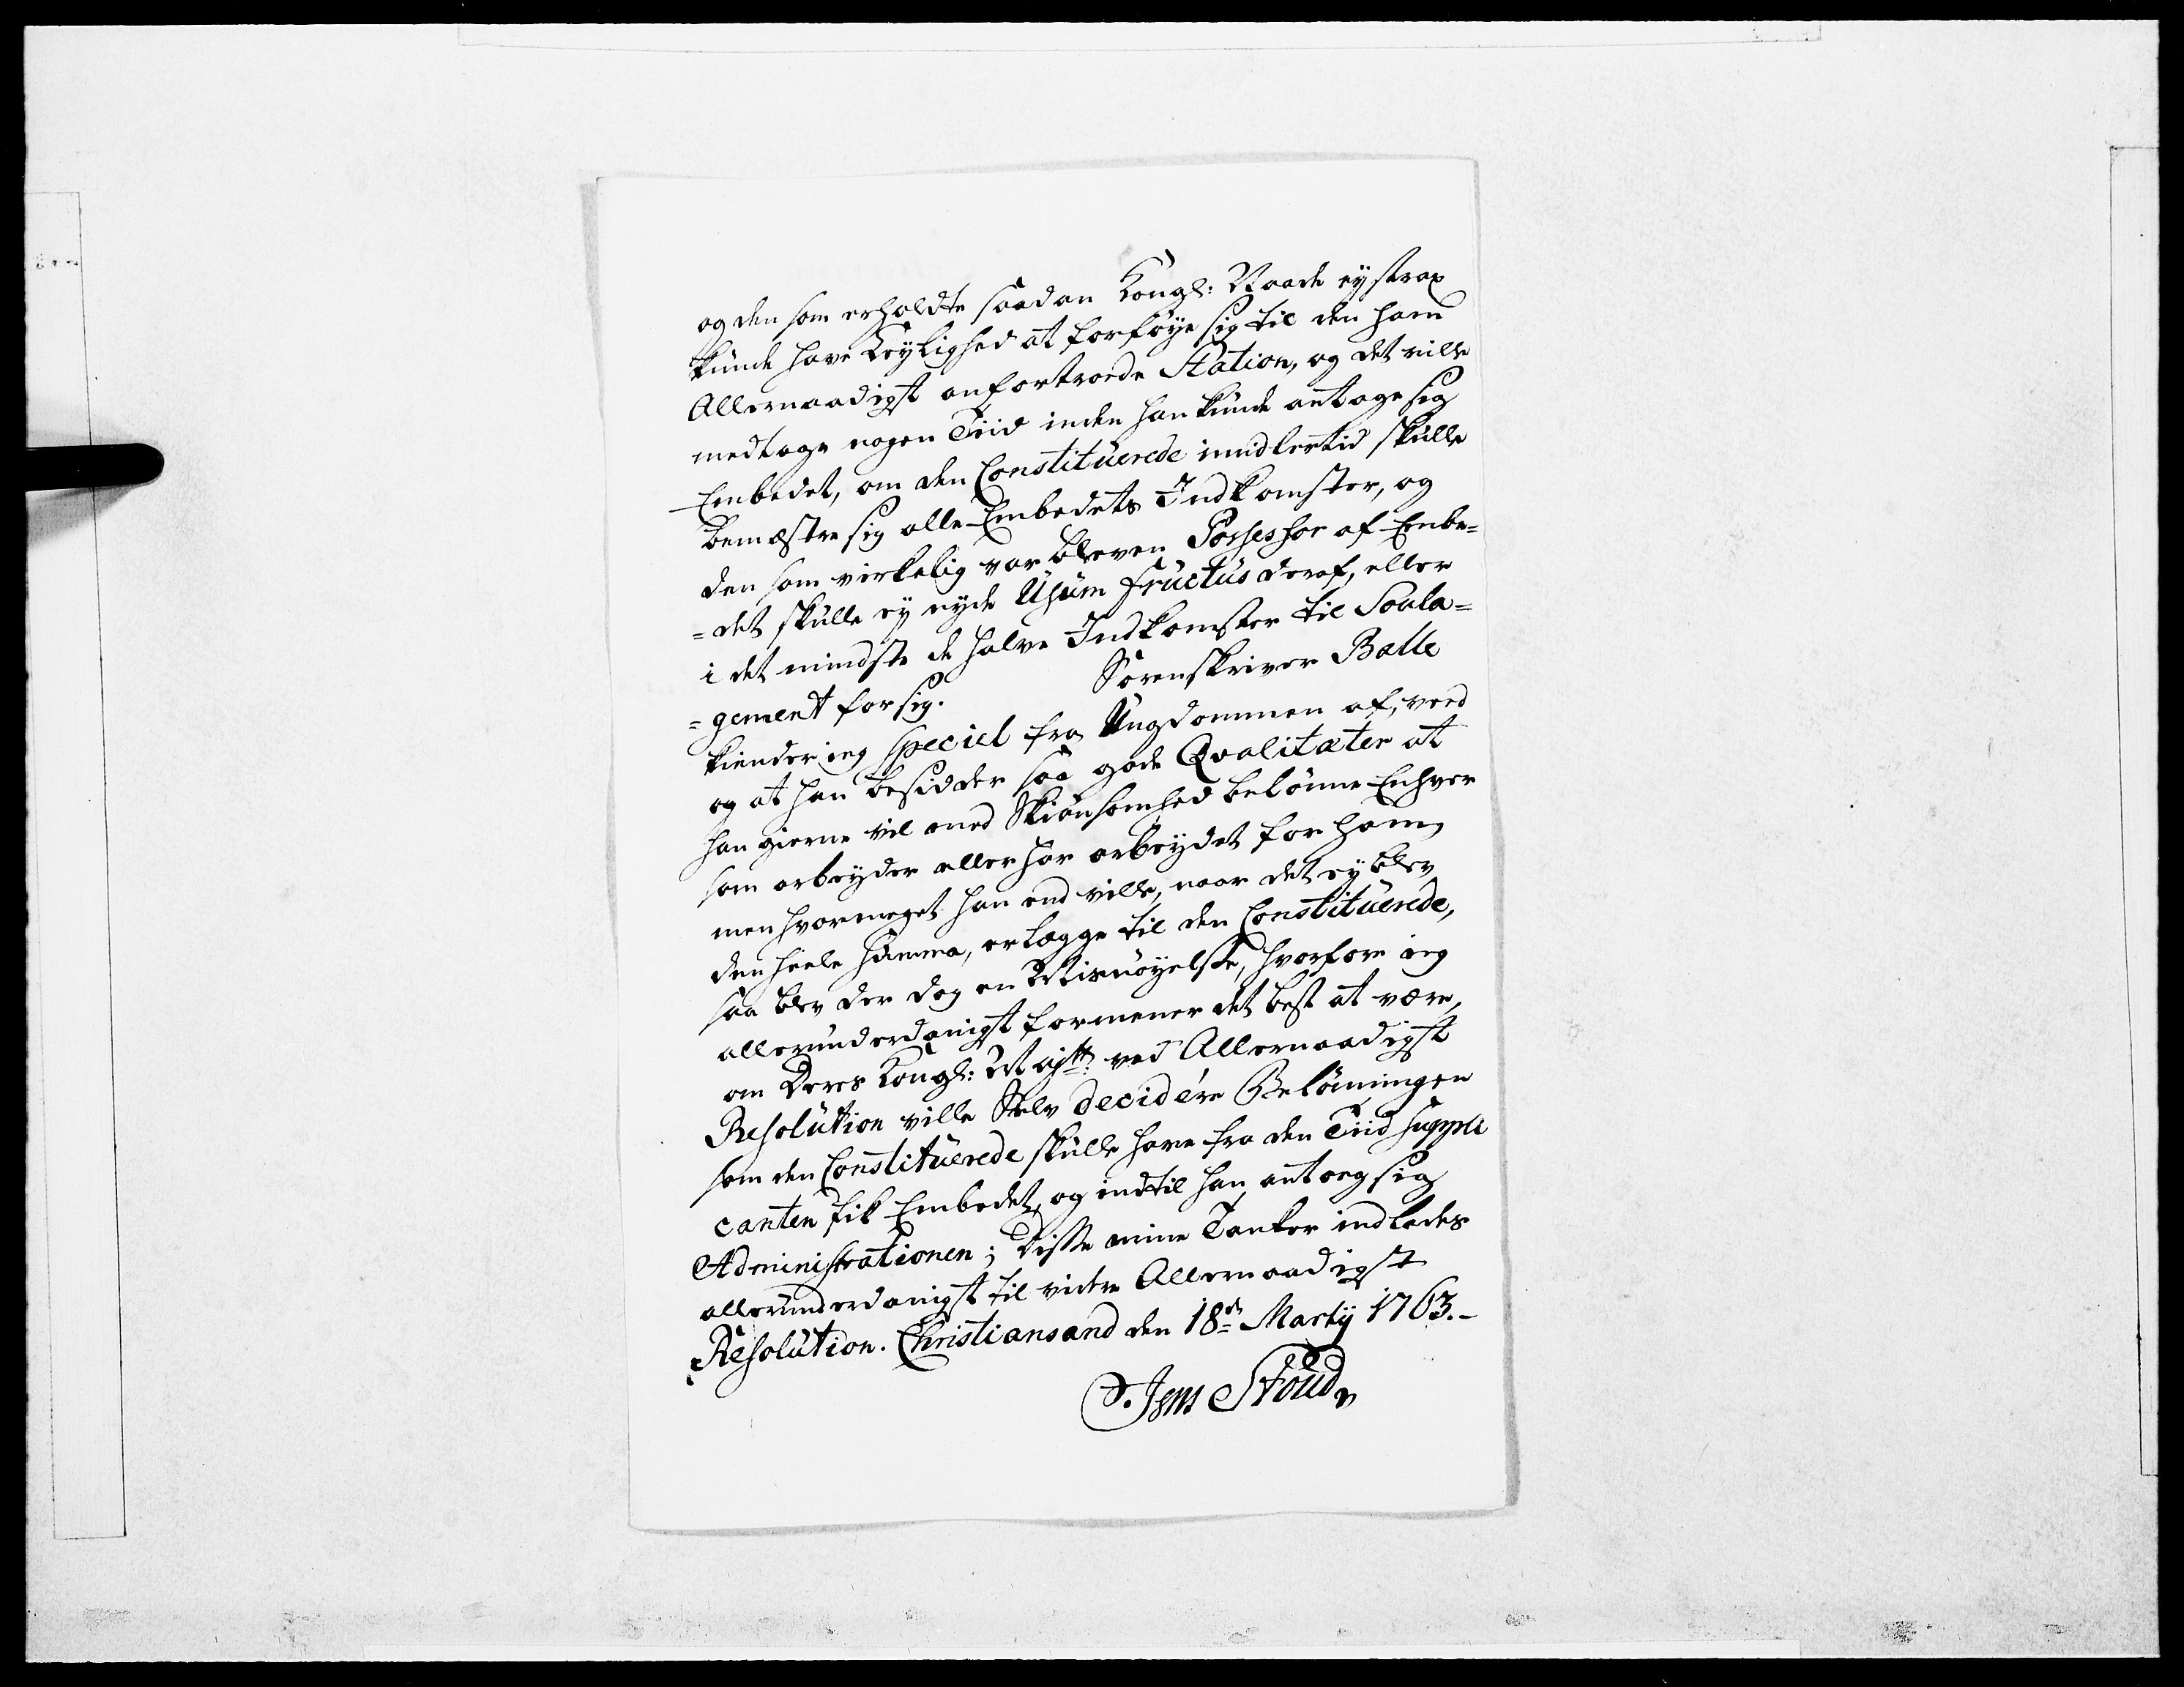 og den som erholdte saadan Kongl: Naade ey strax
kunde have Leylighed at forføye sig til den ham
Allernaadigst anfortroede Station, og det ville
medtage nogen Tiid inden han kunde antage sig
Embedet, om den Constituerede imidlertid skulle
bemæstre sig alle Embedets Indkomster, og
den som virkelig var bleven Possessor af Embe=
=det skulle ey nyde Usum fructus deraf, eller
i det mindste de halve Indkomster til Soula=
=gement for sig. Sorenskriver Balle
kiender ieg speciel fra Ungdommen af, veed
og at han besidder saa gode Qvalitæter at
han gierne vil med Skiønsomhed belønne Enhver
som arbeyder eller har arbeydet for ham,
men hvormeget han end ville, naar det ey blev
den heele Summa, erlægge til den Constituerede,
saa blev der dog en Misnøyelse, hvorfore ieg
allerunderdanigst formener det best at være,
om Deres Kongl: Majtt: ved Allernaadigst
Resolution ville Selv decidére Belønningen
som den Constituerede skulle have fra den Tiid Suppli
canten fik Embedet, og indtil han antoeg sig
Administrationen; Disse mine Tanker indlades
allerunderdanigst til videre Allernaadigst
Resolution. Christiansand den 18de Martij 1763.-
Jens Stoud